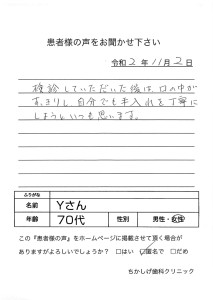 患者様の声をお聞かせ下さい
令和2年11月2日
検診していただいた後は、口の中が
すっきりし、自分でも手入れを丁寧に
しようといつも思います。
ふりがな
名前 Yさん
年齢 70代 性別 男性・女性
この『患者様の声』をホームページに掲載させて頂く場合が
ありますがよろしいでしょうか？ □はい ☑匿名で □だめ
ちかしげ歯科クリニック